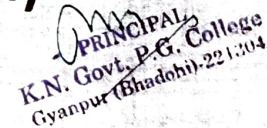 PRINCIPAL
K.N. Govt. P.G. College
Gyanpur (Bhadohi)-221304